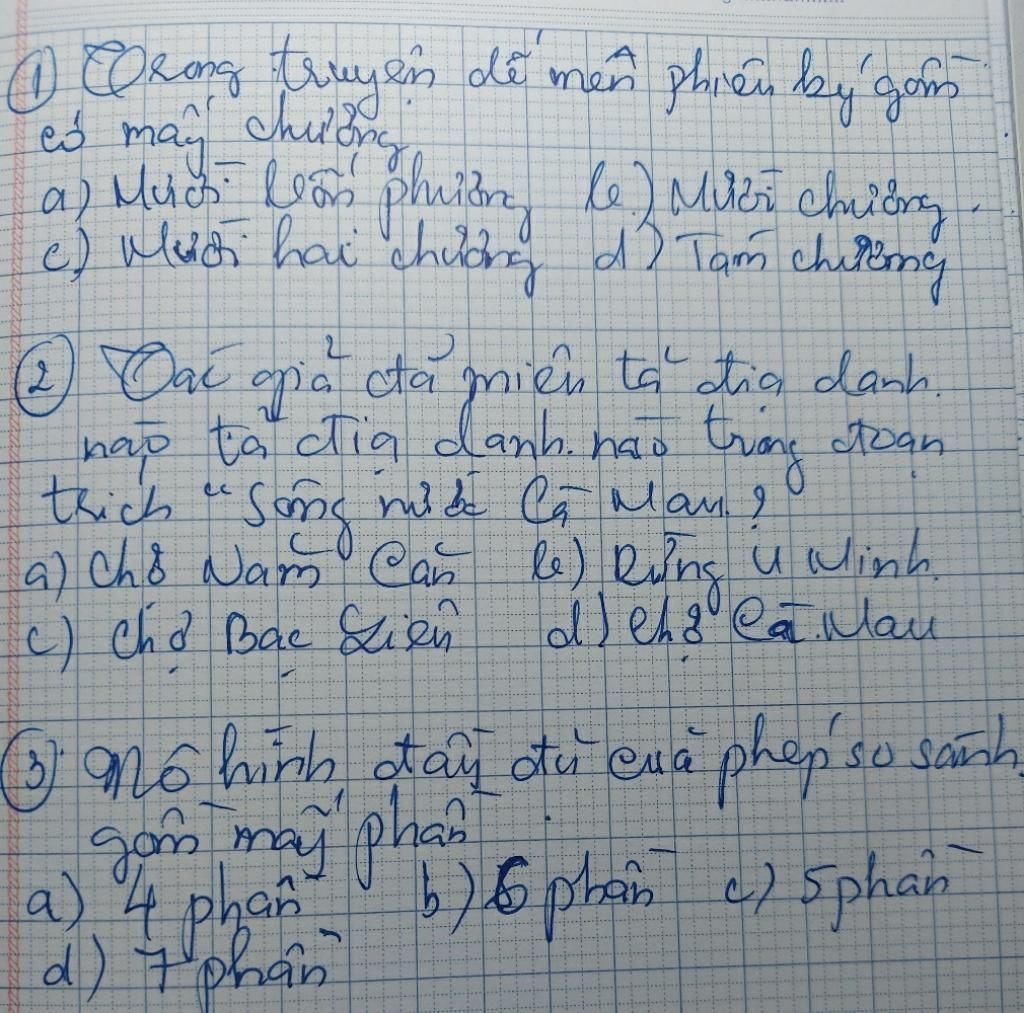 ① Trong truyện dế mèn phiêu ký gồm
có mấy chương
a) Mười bốn phương b) Mười chương.
c) Mười hai chương d) Tám chương
② Tác giả đã miên tả địa danh.
nào tả địa danh. nào trong đoạn
trích "Sông nước Cà Mau?
a) Chợ Năm Căn b) Rừng U Minh.
c) Chợ Bạc Liên d) Chợ Cà Mau
③ Mô hình đầy đủ của phép so sánh
gồm mấy phần
a) 4 phần b) 6 phần c) 5 phần
d) 7 phần